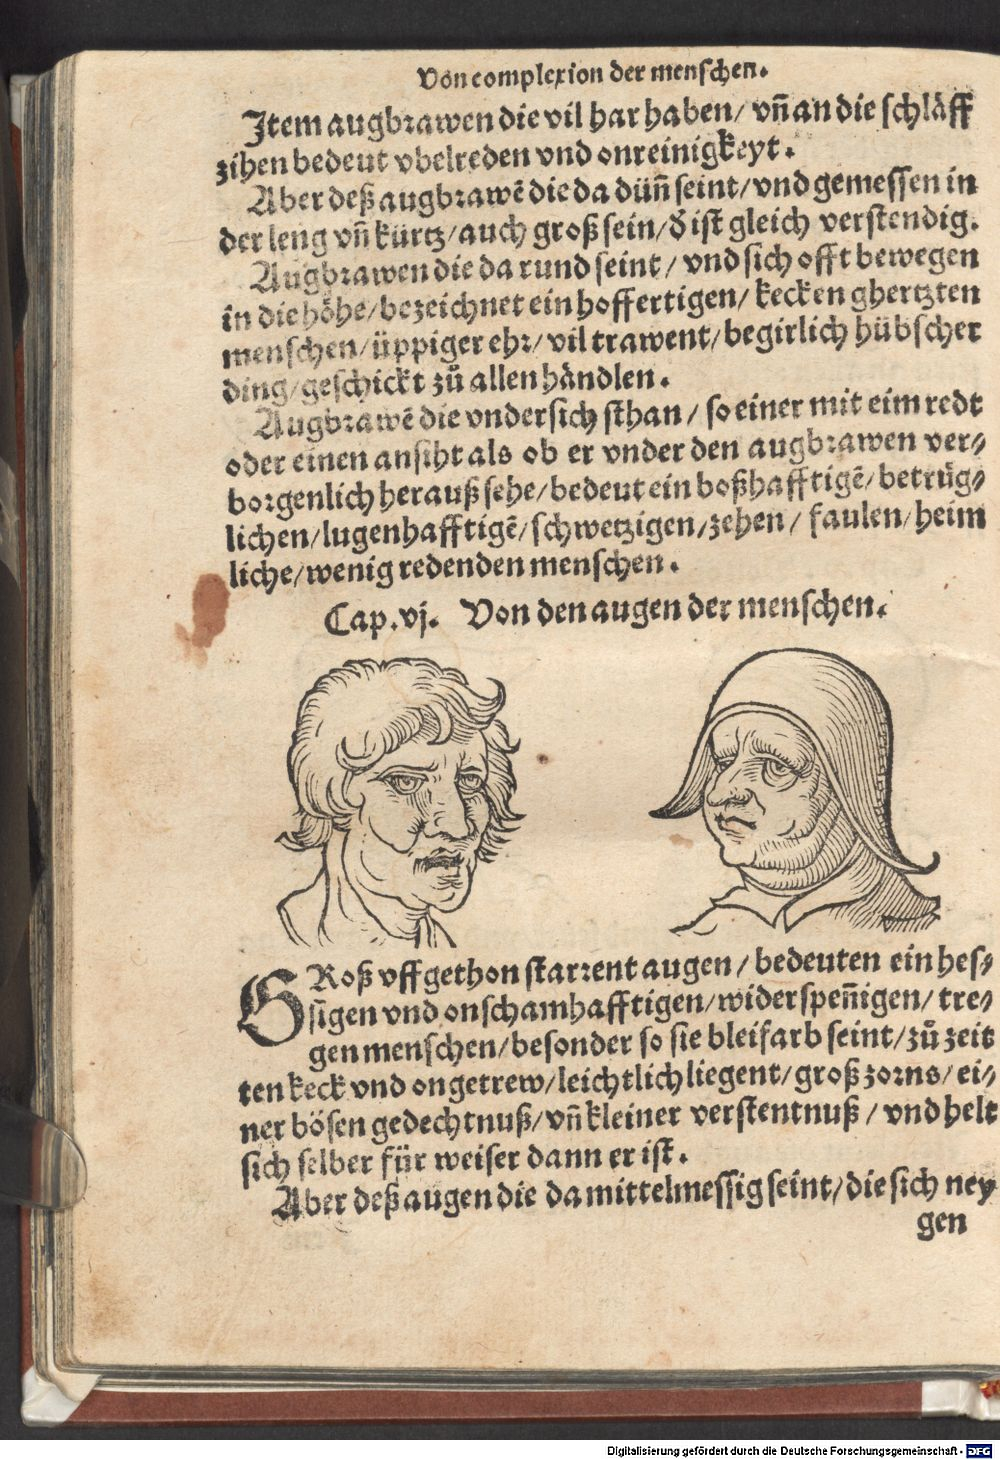 Von complexion der menschen.
Item augbrawen die vil har haben/ vñ an die schläff
zihen bedeut vbelreden vnd onreinigkeyt.
Aber deß augbrawē die da dünn̄ seint/ vnd gemessen in
der leng vñ kürtz/ auch groß sein/ d̄ ist gleich verstendig.
Augbrawen die da rund seint/ vnd sich offt bewegen
in die höhe/ bezeichnet ein hoffertigen/ kecken ghertzten
menschen/ üppiger ehr/ vil trawent/ begirlich hübscher
ding/ geschickt zů allen händlen.
Augbrawē die vndersich sthan/ so einer mit eim redt
oder einen ansiht als ob er vnder den augbrawen ver⸗
borgenlich herauß sehe/ bedeut ein boßhafftigē/ betrüg⸗
lichen/ lugenhafftigē/ schwetzigen/ zehen/ faulen/ heim
liche/ wenig redenden menschen.
Cap. vj. Von den augen der menschen.
GRoß vffgethon starrent augen/ bedeuten ein hes⸗
sigen vnd onschamhafftigen/ widerspeñigen/ tre⸗
gen menschen/ besonder so sie bleifarb seint/ zů zeit
ten keck vnd ongetrew/ leichtlich liegent/ groß zorns/ ei⸗
ner bösen gedechtnuß/ vñ kleiner verstentnuß/ vnd helt
sich selber für weiser dann er ist.
Aber deß augen die da mittelmessig seint/ die sich ney
gen
Digitalisierung gefördert durch die Deutsche Forschungsgemeinschaft - DFG